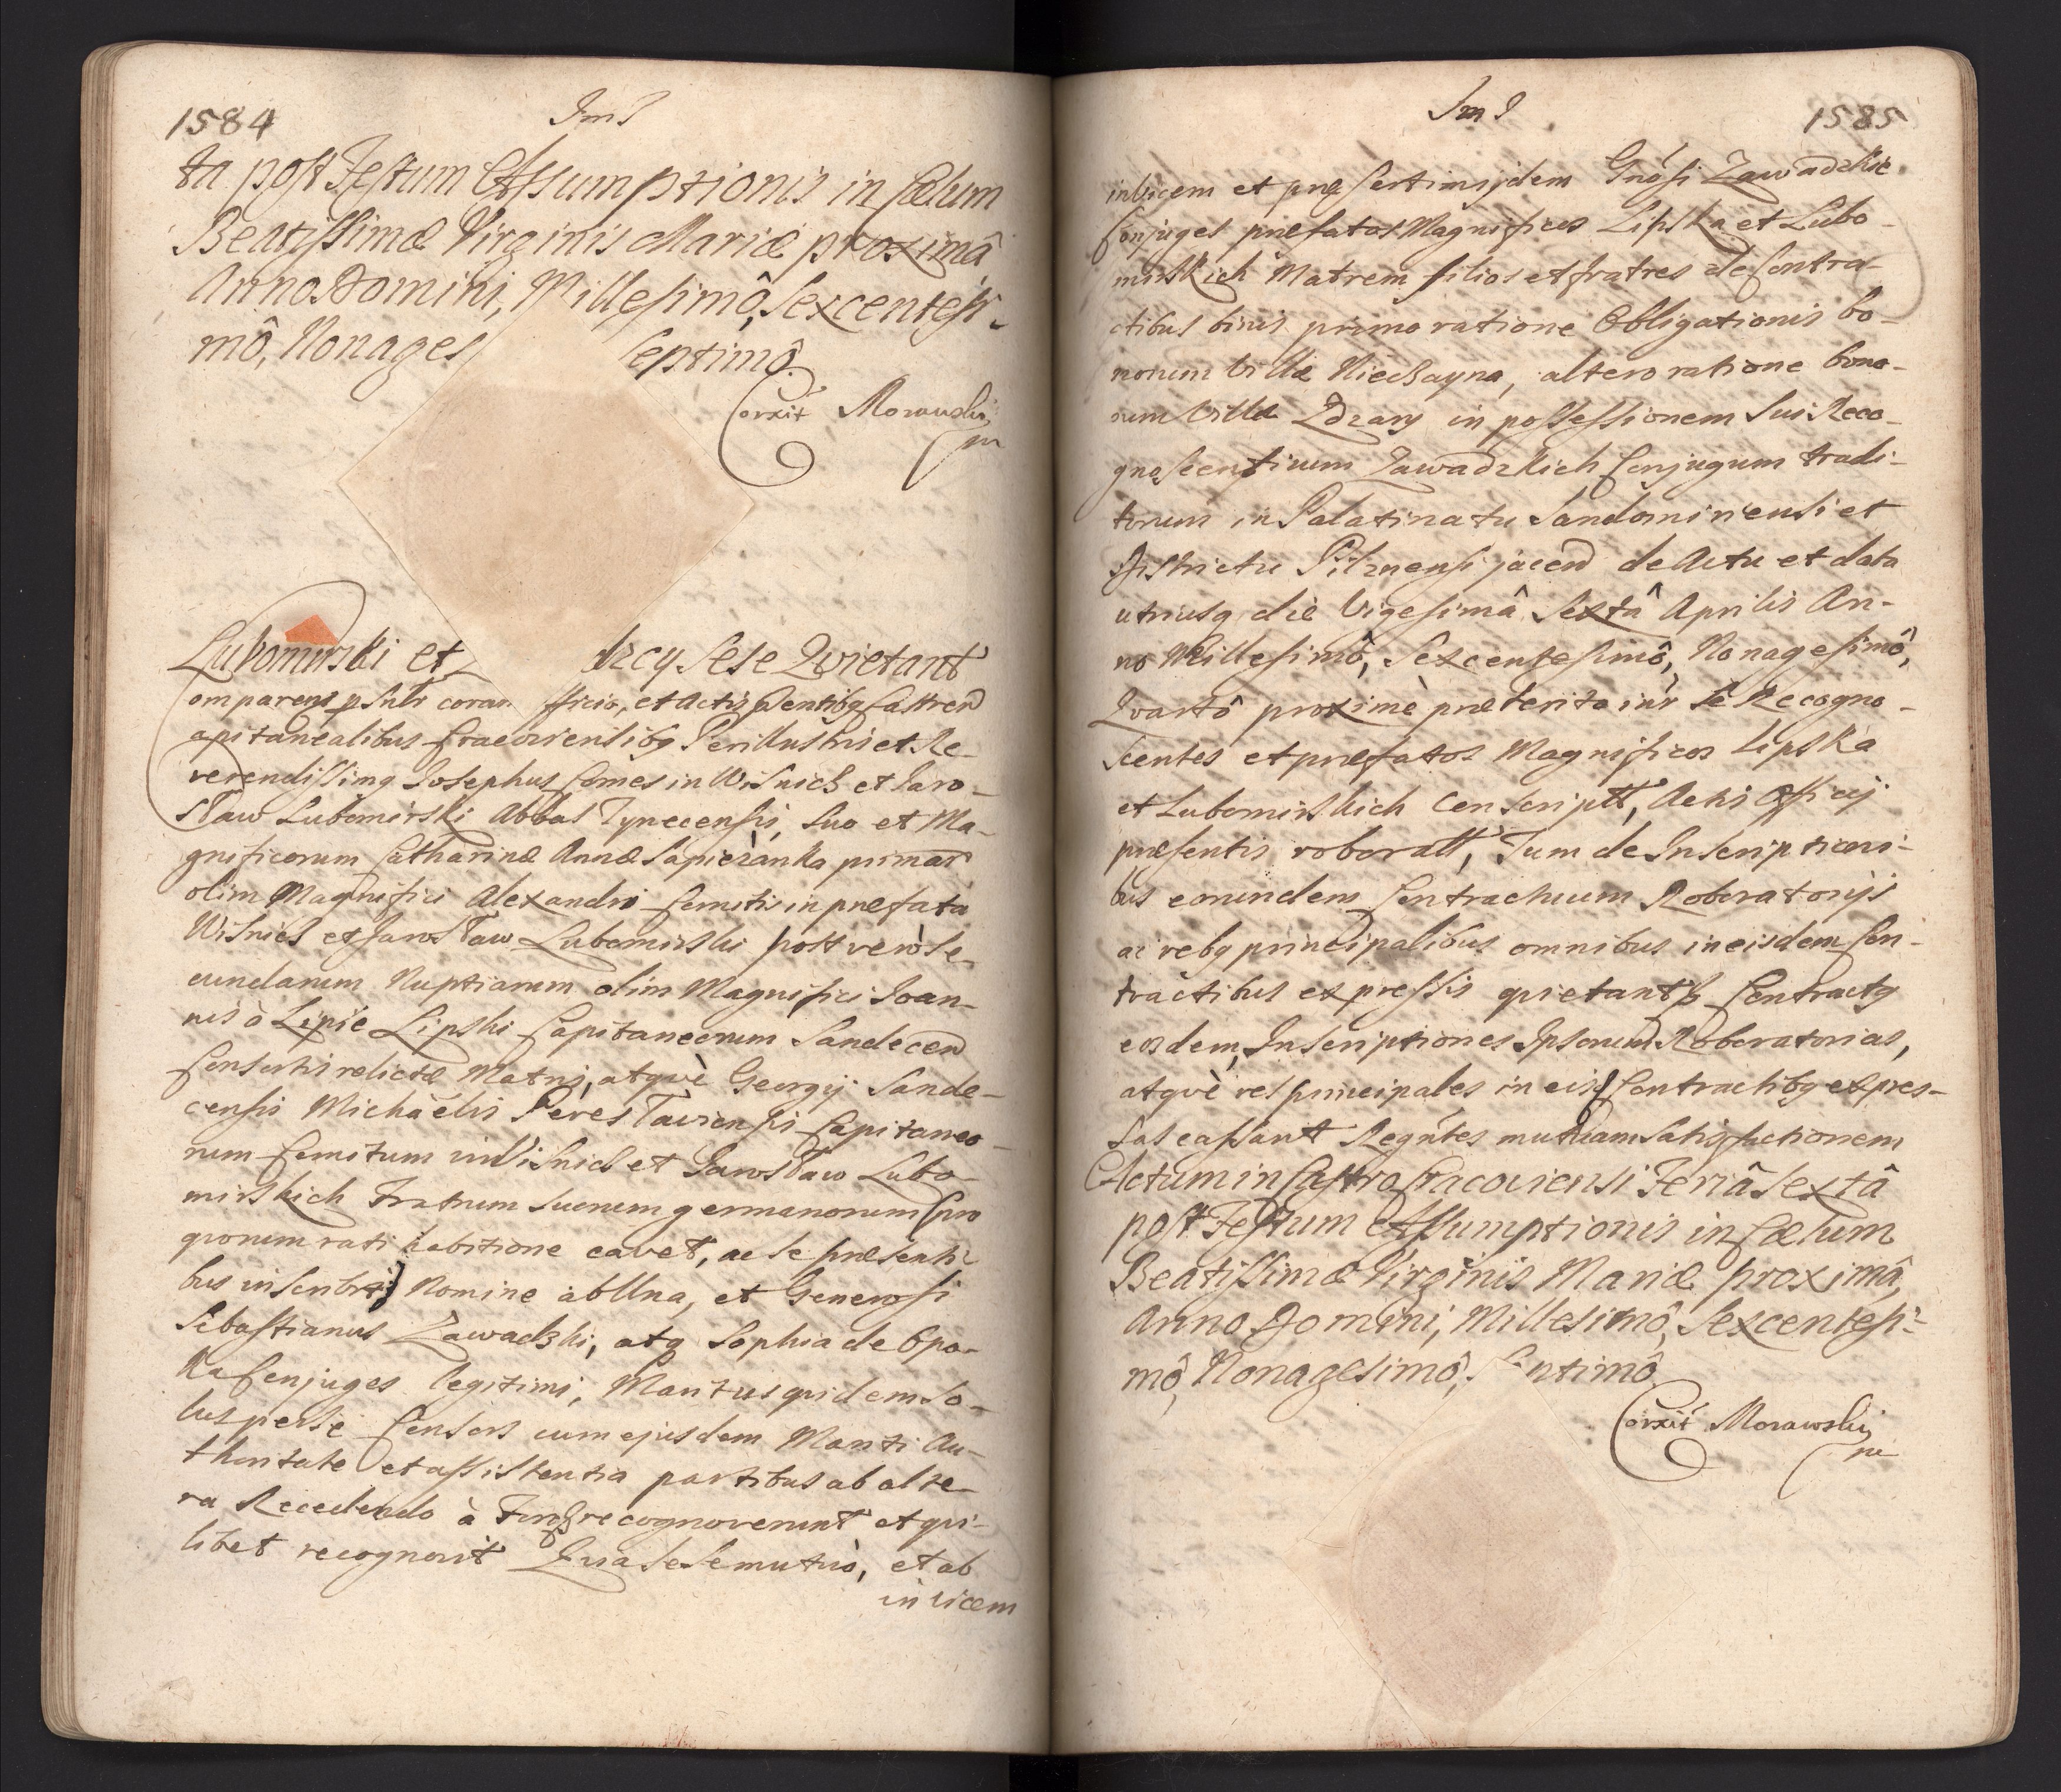 1584
JmJ
ta post Festum Assumptionis in Cælum
Beatissimæ Virginis Mariæ proximâ
Anno Domini, Millesimô, Sexcentesi-
mô, Nonages Septimô.
Corxit Morawski
Lubomirski et dzcy sese Qvietant
omparens psnlr coram fficio, et Actis pntibq Castren
apitanealibus Cracoviensibq Perillustris et Re-
verendissimq Josephus Comes in Wisnicz et Jaro-
sław Lubomirski Abbas Tynecensis, suo et Ma-
gnificorum Catharinæ Annæ Sapiezanka primar
olim Magnifici Alexandri Comitis in præfata
Wisnicz et Jarosław Lubomirski post verò se-
cundarum Nuptiarum olim Magnifici Joan-
nis à Lipie Lipski Capitaneorum Sandecen
Consortis relictæ Matris, atqvè Georgij Sande-
censis Michäelis Peresławiensis Capitaneo-
rum Comitum in Wisnicz et Jarosław Lubo-
mirskich Fratrum suorum germanorum (pro
qvorum rati habitione cavet, ac se præsenti-
bus inscribit) Nomine ab Una, et Generosi
Sebastianus Zawadzki, atq Sophia de Opo-
ka Conjuges legitimi, Maritus qvidem so-
lus per se Consors cum ejusdem Mariti Au-
thoritate et assistentia partibus ab alte-
ra Recedendo à recognoverunt et qvi-
libet recognovit Qvia sese mutuò, et ab
invicem
JmJ
1585
invicem et præsertim ijdem Gnosi Zawadzkie
Conjuges præfatos Magnificos Lipska et Lubo-
mirskich Matrem filios et fratres de Contra-
ctibus binis primo ratione Obligationis bo-
norum Villæ Niechayna, altero ratione bono-
rum Villæ Zdzary in possessionem sui Reco-
gnoscentium Zawadzkich Conjugum tradi-
torum in Palatinatu Sandomiriensi et
Districtu Pilznensi jacen de Actu et data
utriusq die Vigesimâ Sextâ Aprilis An-
no Millesimô, Sexcentesimô, Nonagesimô,
Qvartô proximè præterito intr se Recogno-
scentes et præfatos Magnificos Lipska
et Lubomirskich Conscriptt, Actis Officij
præsentis roboratt, Tum de Inscriptioni-
bus eorundem Contractuum Roboratorijs
ac rebq principalibus omnibus in eisdem Con-
tractibus expressis qvietant Contractq
eosdem, Inscriptiones Ipsorum Roboratorias,
atqvè res principales in eisd Contractibq expres-
sas cassant Regntes mutuam Satisfactionem
Actum in Castro Cracoviensi Feriâ Sextâ
post Festum Assumptionis in Cælum
Beatissimæ Virginis Mariæ proximâ,
Anno Domini, Millesimô, Sexcentesi-
mô, Nonagesimô, S ptimô
Corxit Morawski